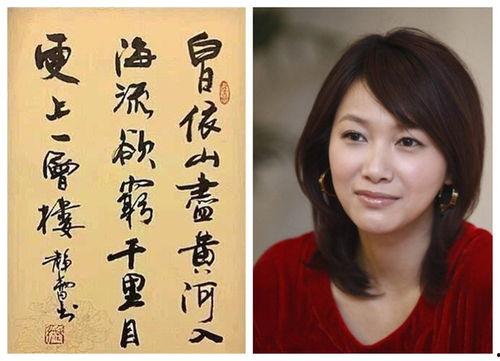 白日依山盡黃河入
海流欲窮千里目
更上一層樓
静蕾书